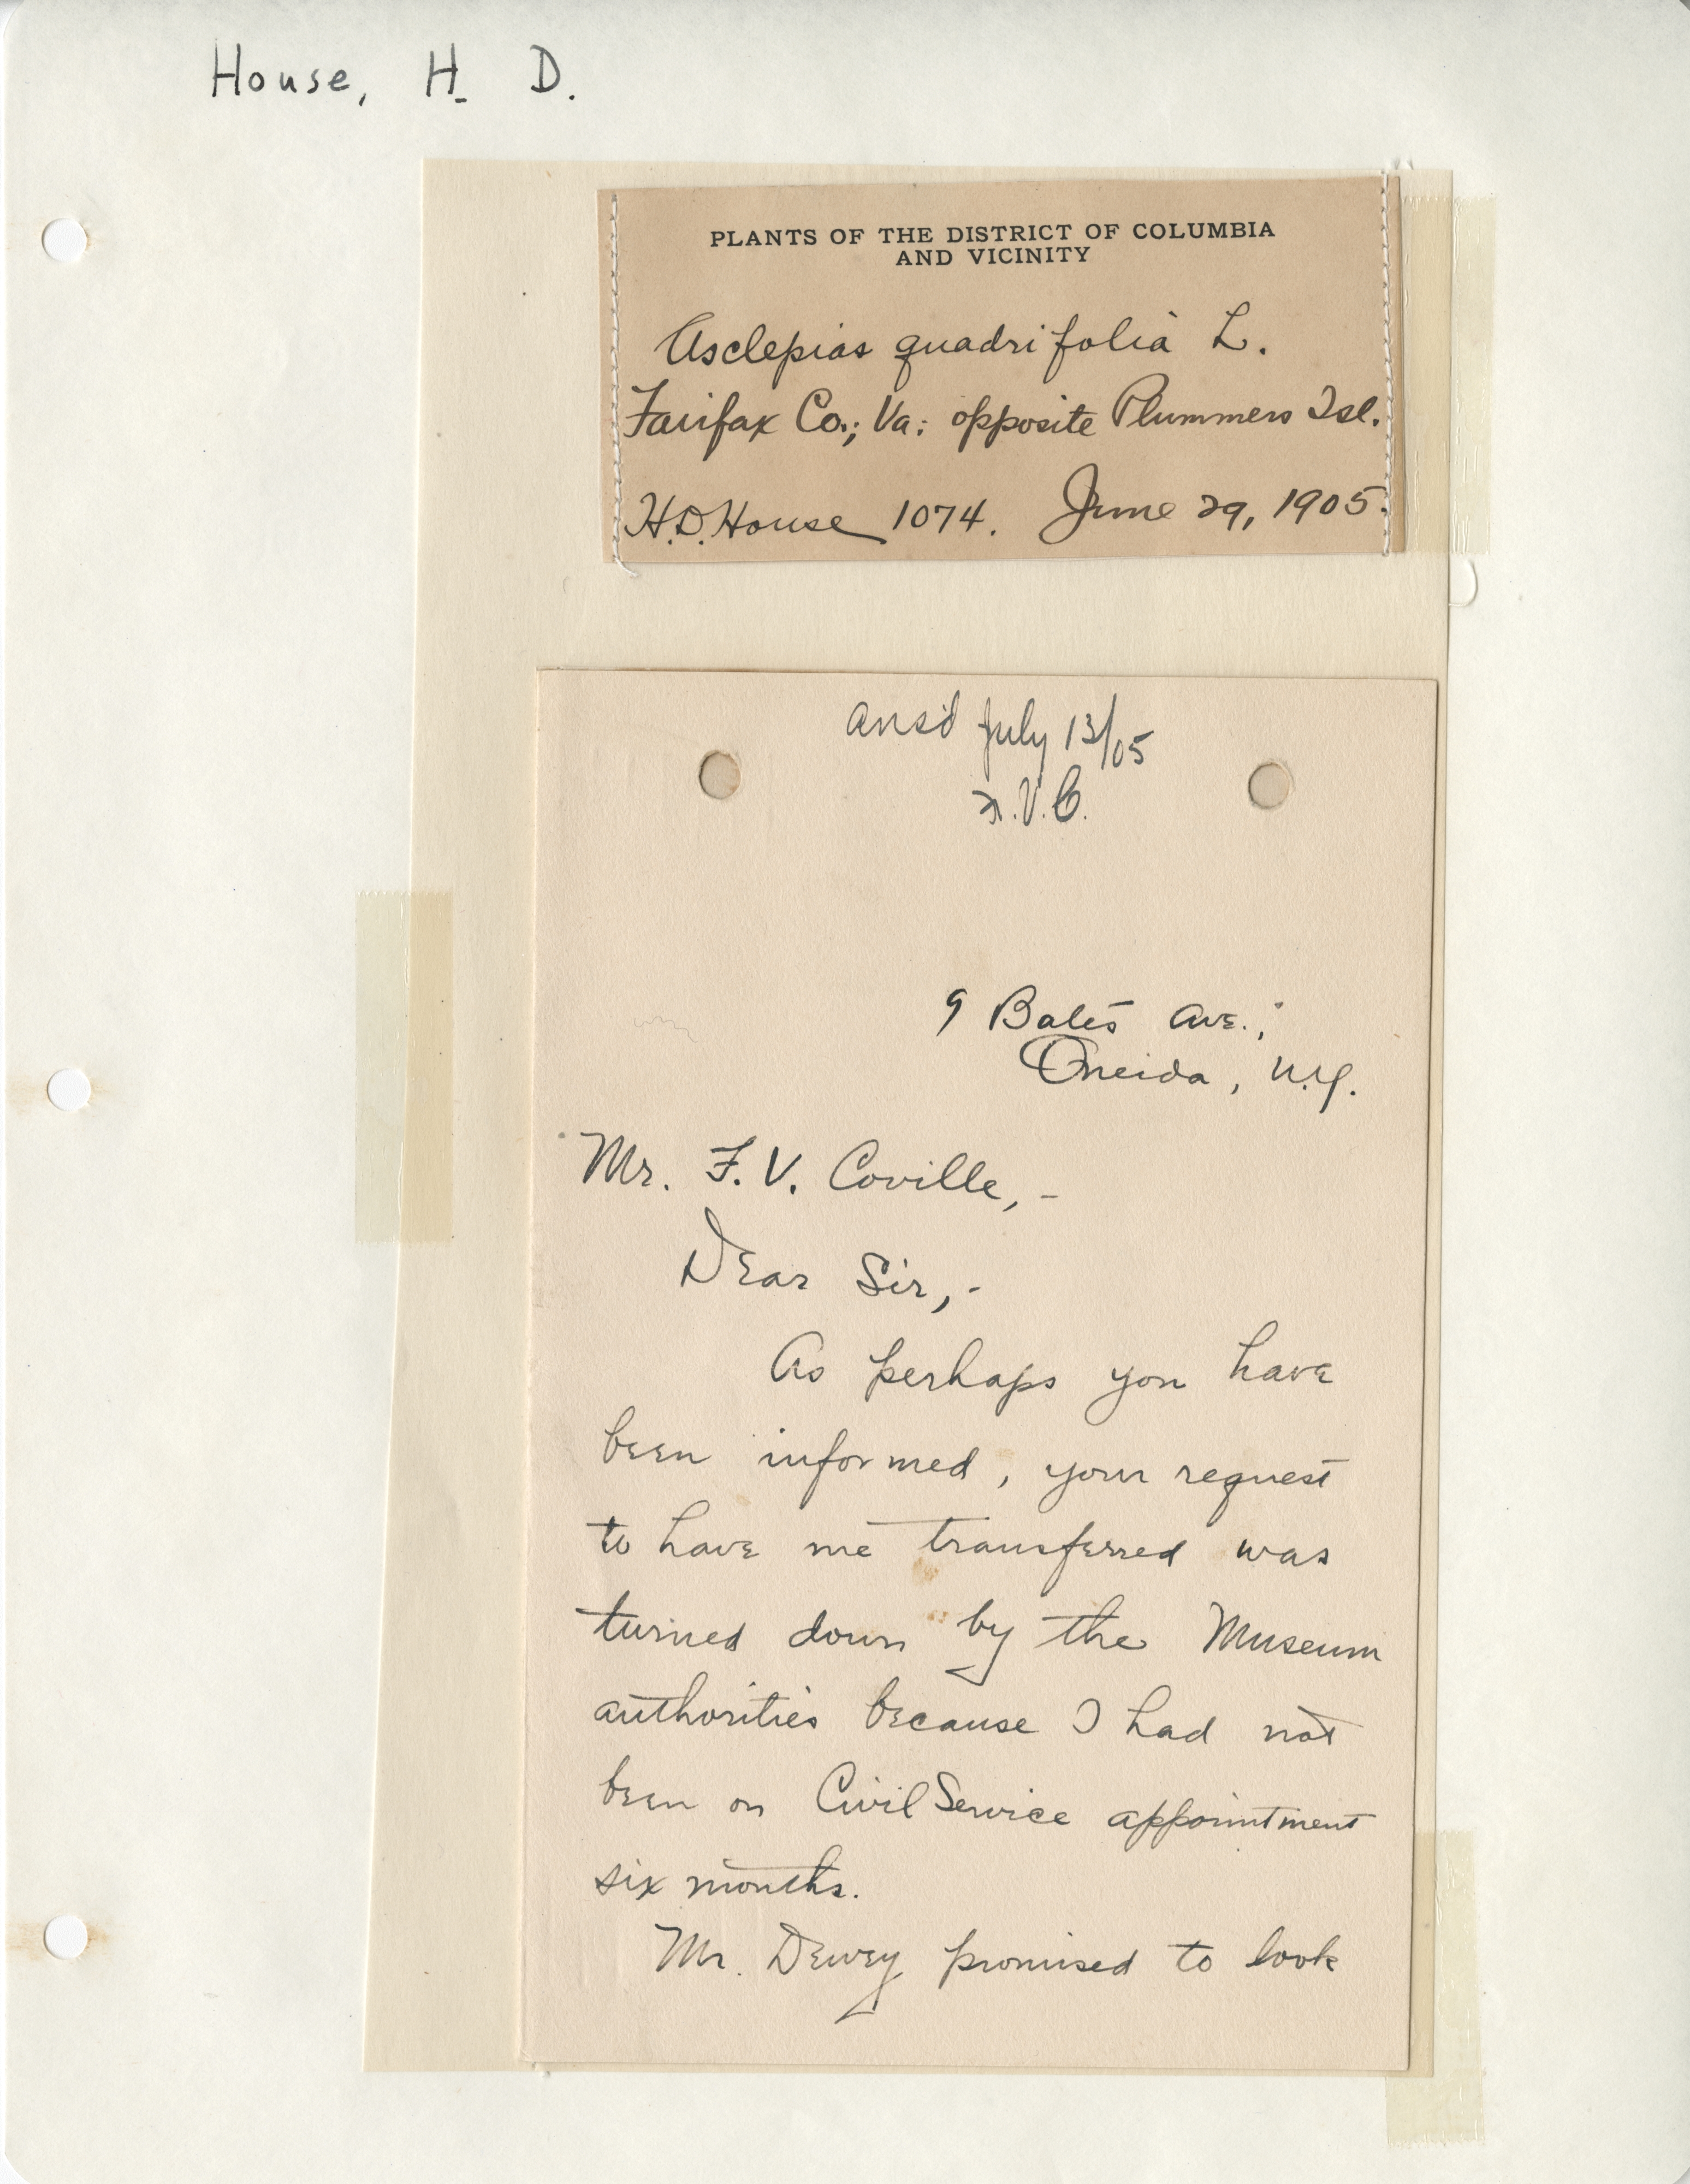 House, H. D.
PLANTS OF THE DISTRICT OF COLUMBIA
AND VICINITY
Asclepias quadrifolia L.
Fairfax Co.; Va: opposite Plummers Isl.
H.D. House 1074. June 29, 1905.
ansd July 13/05
F.V.C.
9 Bates Ave.,
Oneida, N.Y.
Mr. F. V. Coville,-
Dear Sir,-
As perhaps you have
been informed, your request
to have me transferred was
turned down by the Museum
authorities because I had not
been on Civil Service appointment
six months.
Mr. Dewey promised to look